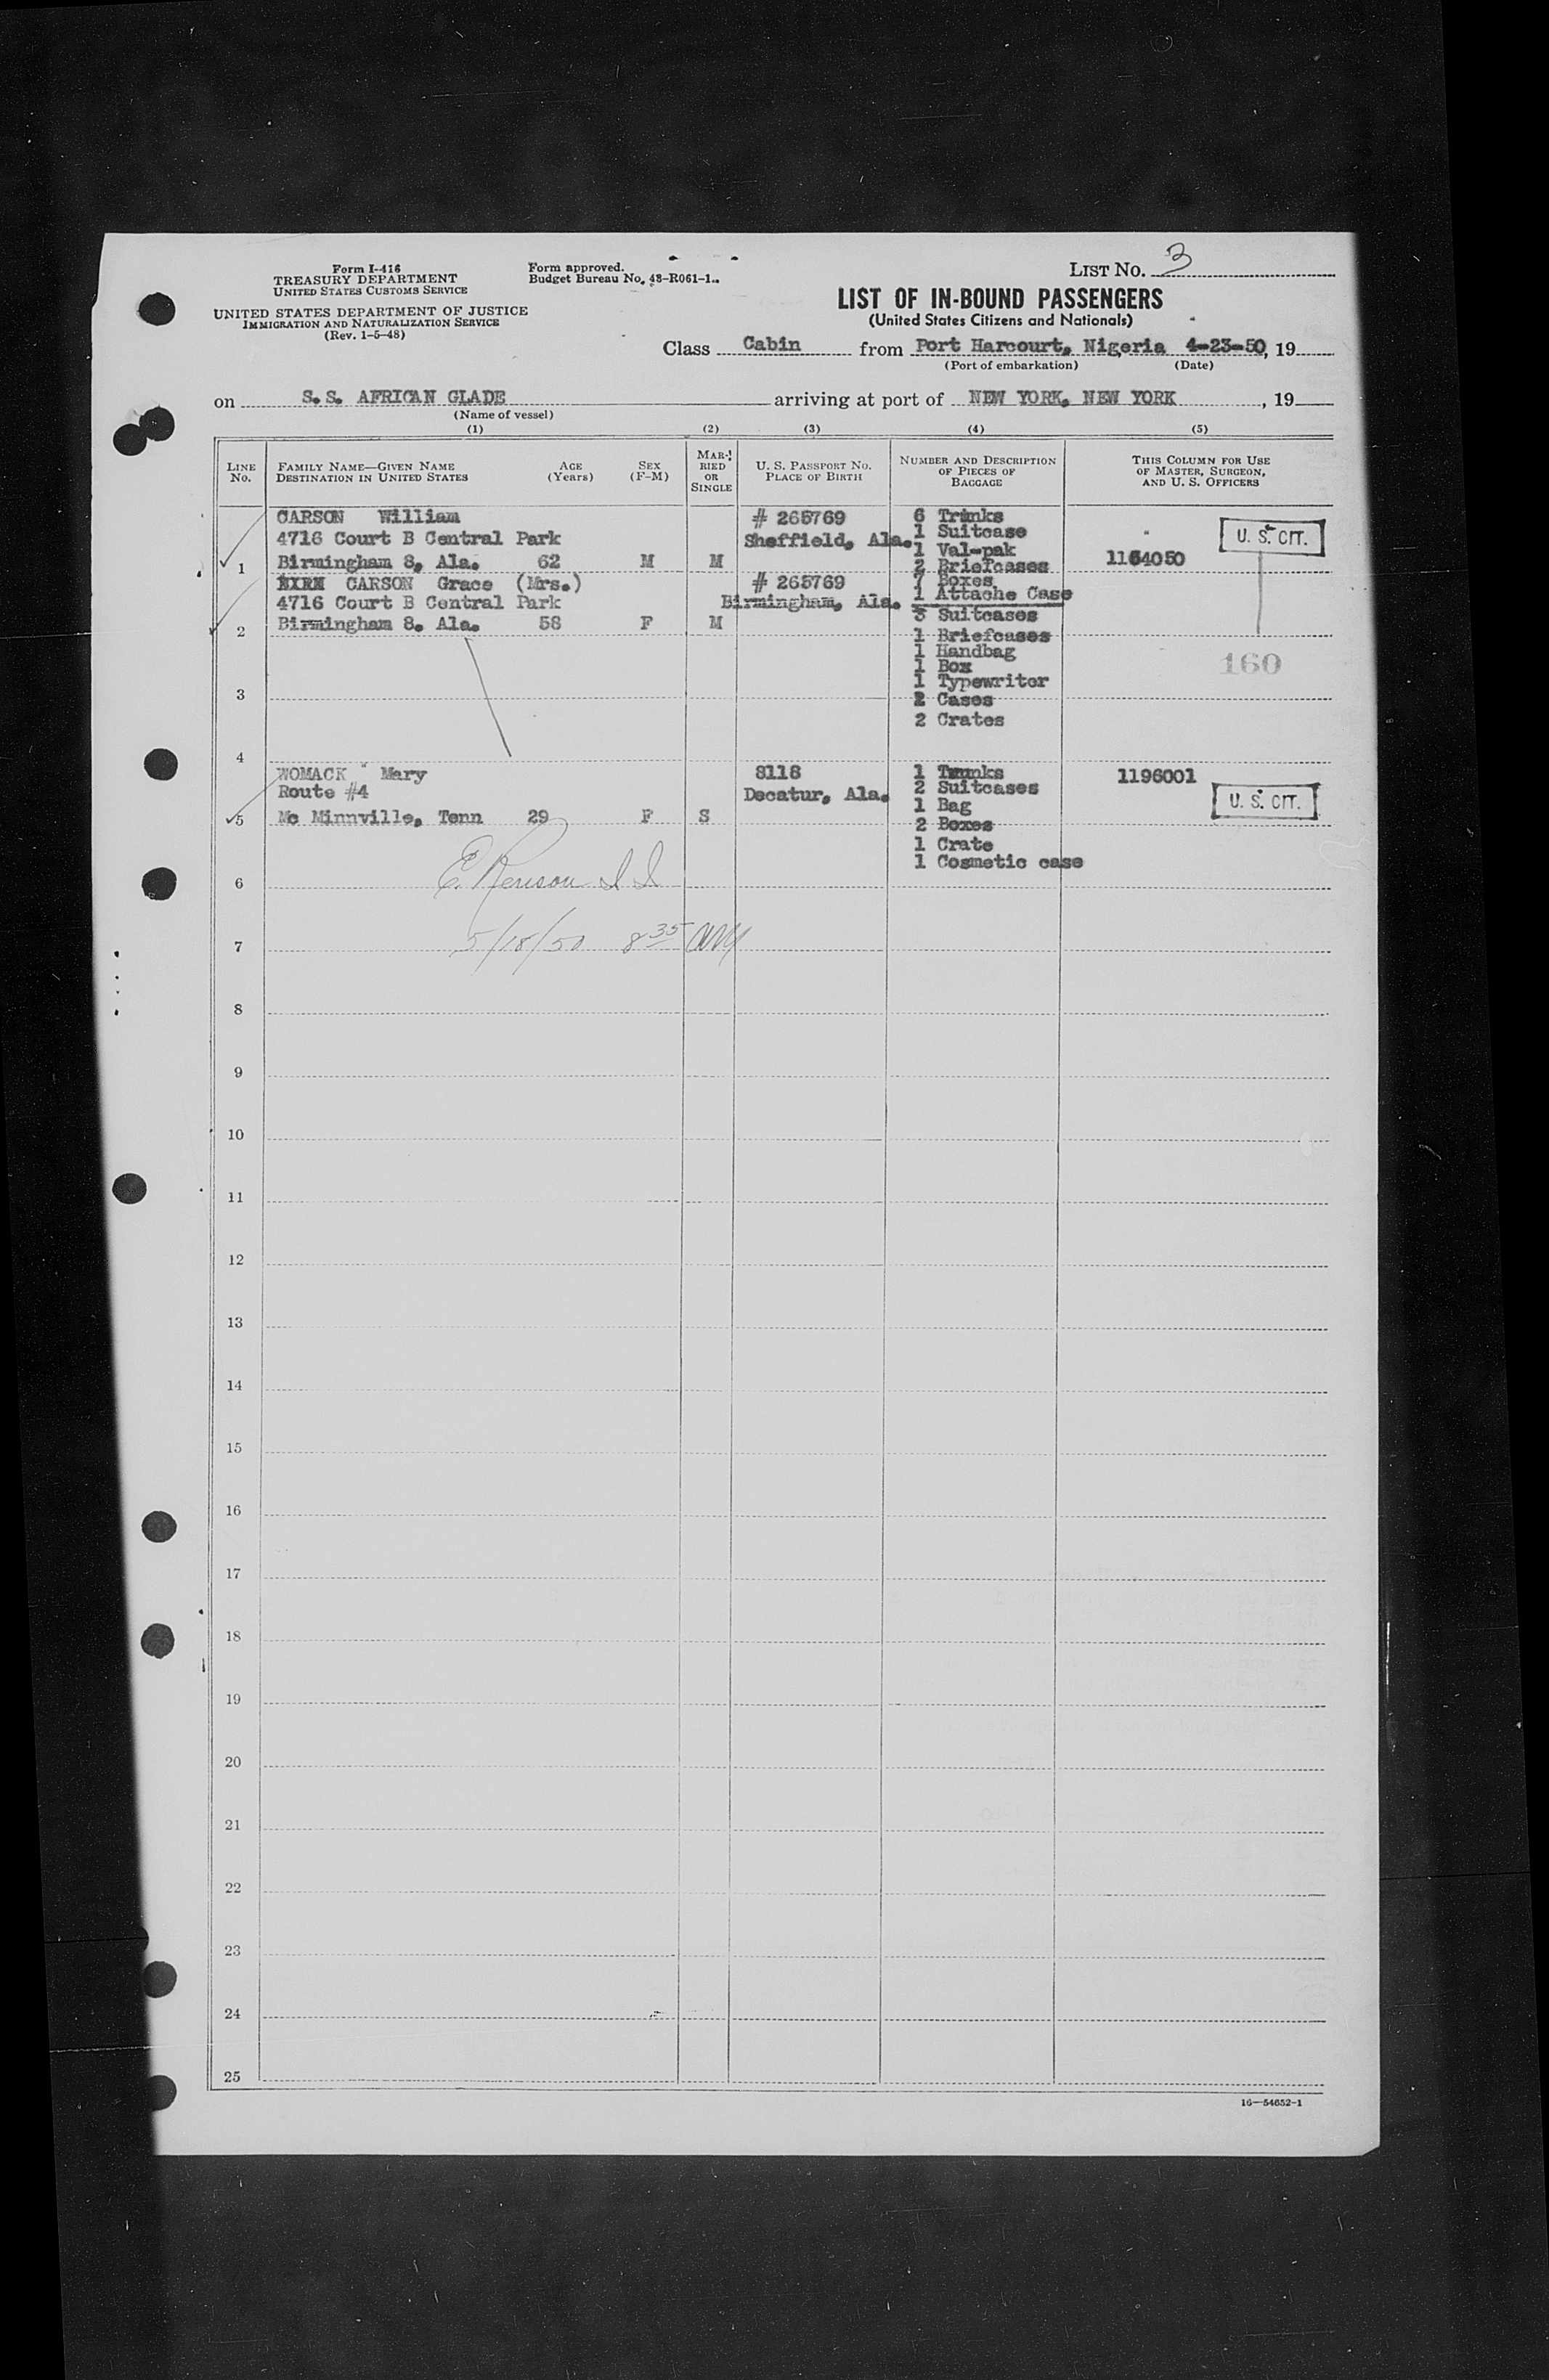 Form I-416
TREASURY DEPARTMENT
UNITED STATES CUSTOMS SERVICE
UNITED STATES DEPARTMENT OF JUSTICE
IMMIGRATION AND NATURALIZATION SERVICE
(Rev. 1-5-48)
Form approved.
Budget Bureau No. 43-R061-1.
LIST NO. 3
LIST OF IN-BOUND PASSENGERS
(United States Citizens and Nationals)
Class Cabin from Port Harcourt, Nigeria 4-23-50, 19
(Port of embarkation) (Date)
on S.S. AFRICAN GLADE arriving at port of NEW YORK, NEW YORK, 19
(Name of vessel)
(1) (2) (3) (4) (5)
LINE NO. FAMILY NAME—GIVEN NAME DESTINATION IN UNITED STATES AGE (Years) SEX (F-M) MARRIED OR SINGLE U. S. PASSPORT NO. PLACE OF BIRTH NUMBER AND DESCRIPTION OF PIECES OF BAGGAGE THIS COLUMN FOR USE OF MASTER, SURGEON, AND U. S. OFFICERS
CARSON William # 265769 6 Trunks
4716 Court B Central Park Sheffield, Ala. 1 Suitcase U. S. CIT.
1 Birmingham 8, Ala. 62 M M 1 Val-pak 1164050
2 Briefcases
CARSON Grace (Mrs.) # 265769 7 Boxes
4716 Court B Central Park Birmingham, Ala. 1 Attache Case
2 Birmingham 8. Ala. 58 F M Suitcases
1 Briefcases
1 Handbag
1 Box 160
1 Typewriter
3 2 Cases
2 Crates
4
WOMACK Mary 8118 1 Trunks 1196001
Route #4 Decatur, Ala. 2 Suitcases U. S. CIT.
1 Bag
5 Mc Minnville, Tenn 29 F S 2 Boxes
1 Crate
1 Cosmetic case
6
7 5/18/50 8 35
8
9
10
11
12
13
14
15
16
17
18
19
20
21
22
23
24
25
16—54652-1